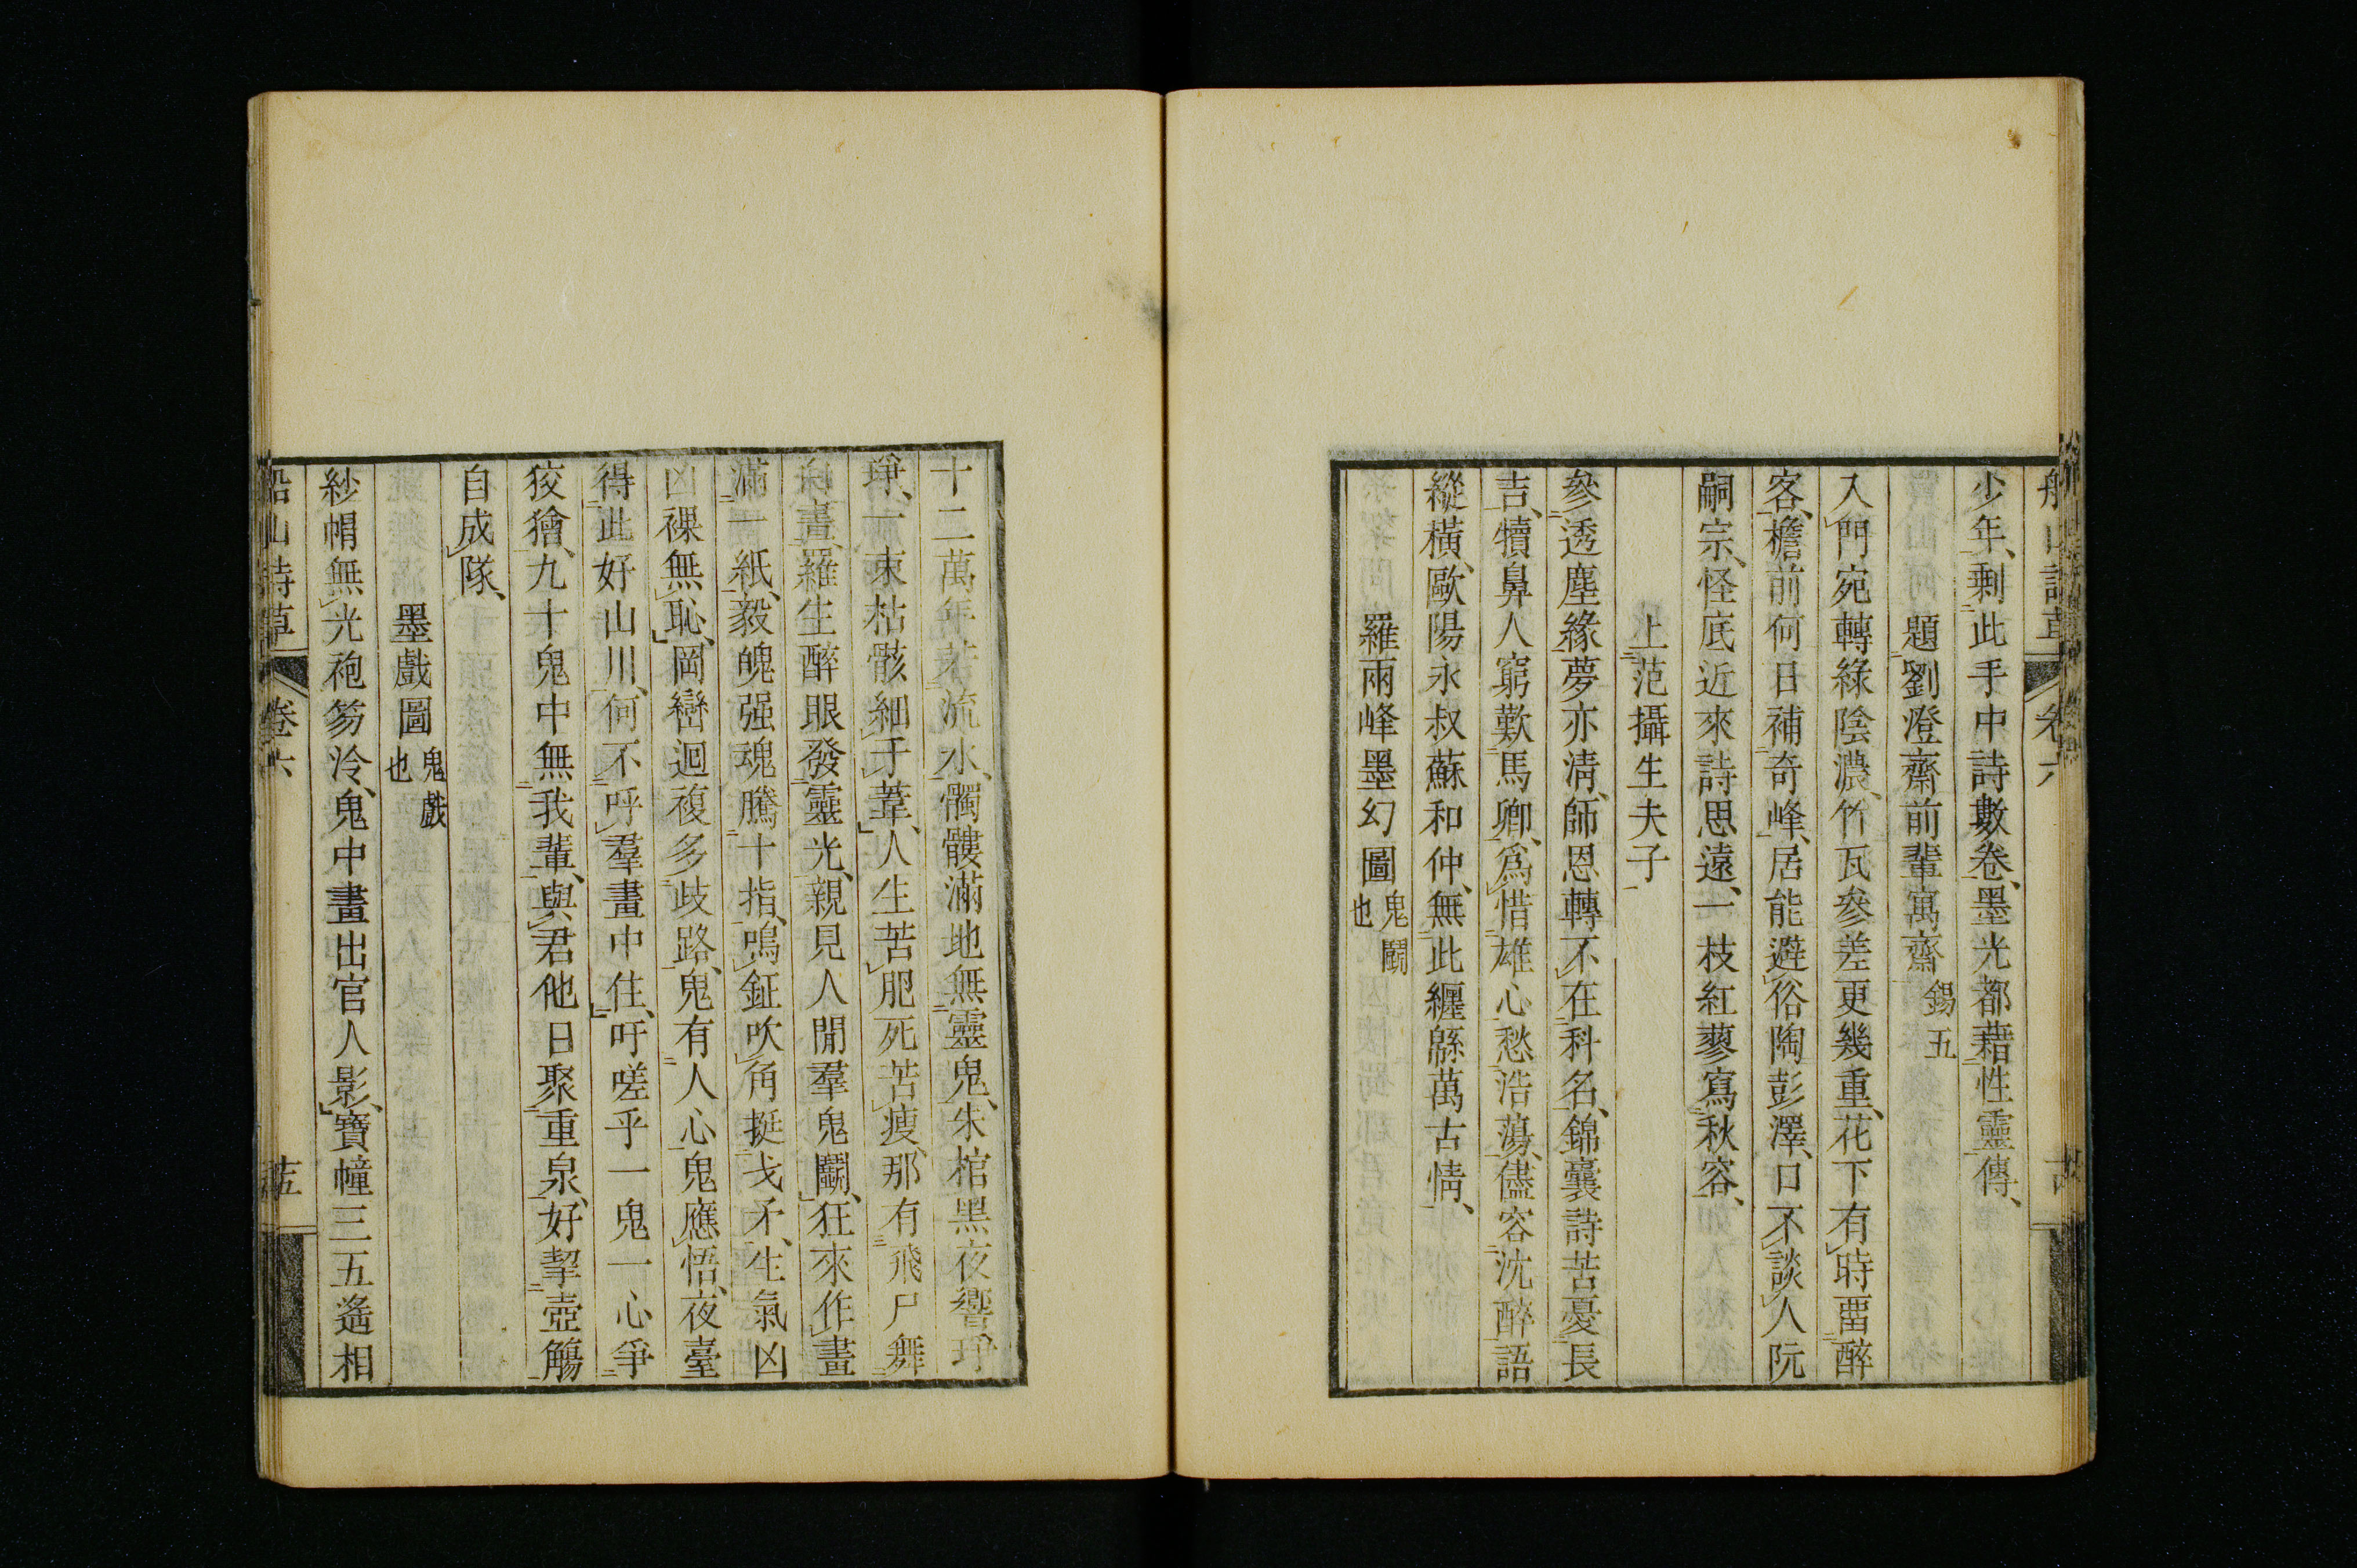 船山詩草 卷六
少年、剩此手中詩數卷、墨光都藉性靈傳、
題劉澄齋前輩寓齋 錫五
入門宛轉綠陰濃、竹瓦參差更幾重、花下有時畱醉
客、檐前何日補奇峰、居能避俗陶彭澤、口不談人阮
嗣宗、怪底近來詩思遠、一枝紅蓼寫秋容、
上范攝生夫子
參透塵緣夢亦淸、師恩轉不在科名、錦囊詩苦憂長
吉、犢鼻人窮歎馬卿、爲惜雄心愁浩蕩、儘容沈醉語
縱橫、歐陽永叔蘇和仲、無此纏緜萬古情、
羅兩峰墨幻圖 鬼鬭也
十二萬年若流水、髑髏滿地無靈鬼、朱棺黑夜響琤
琤、一束枯骸細于葦、人生苦肥死苦瘦、那有飛尸舞
白晝、羅生醉眼發靈光、親見人閒羣鬼鬭、狂來作畫
滿一紙、毅魄强魂騰十指、鳴鉦吹角挺戈矛、生氣凶
凶裸無恥、岡巒迴複多歧路、鬼有人心鬼應悟、夜臺
得此好山川、何不呼羣畫中住、吁嗟乎一鬼一心爭
狡獪、九十鬼中無我輩、與君他日聚重泉、好挈壺觴
自成隊、
墨戲圖 鬼戲也
紗帽無光袍笏冷、鬼中畫出官人影、寶幢三五遙相
船山詩草 卷六 十五